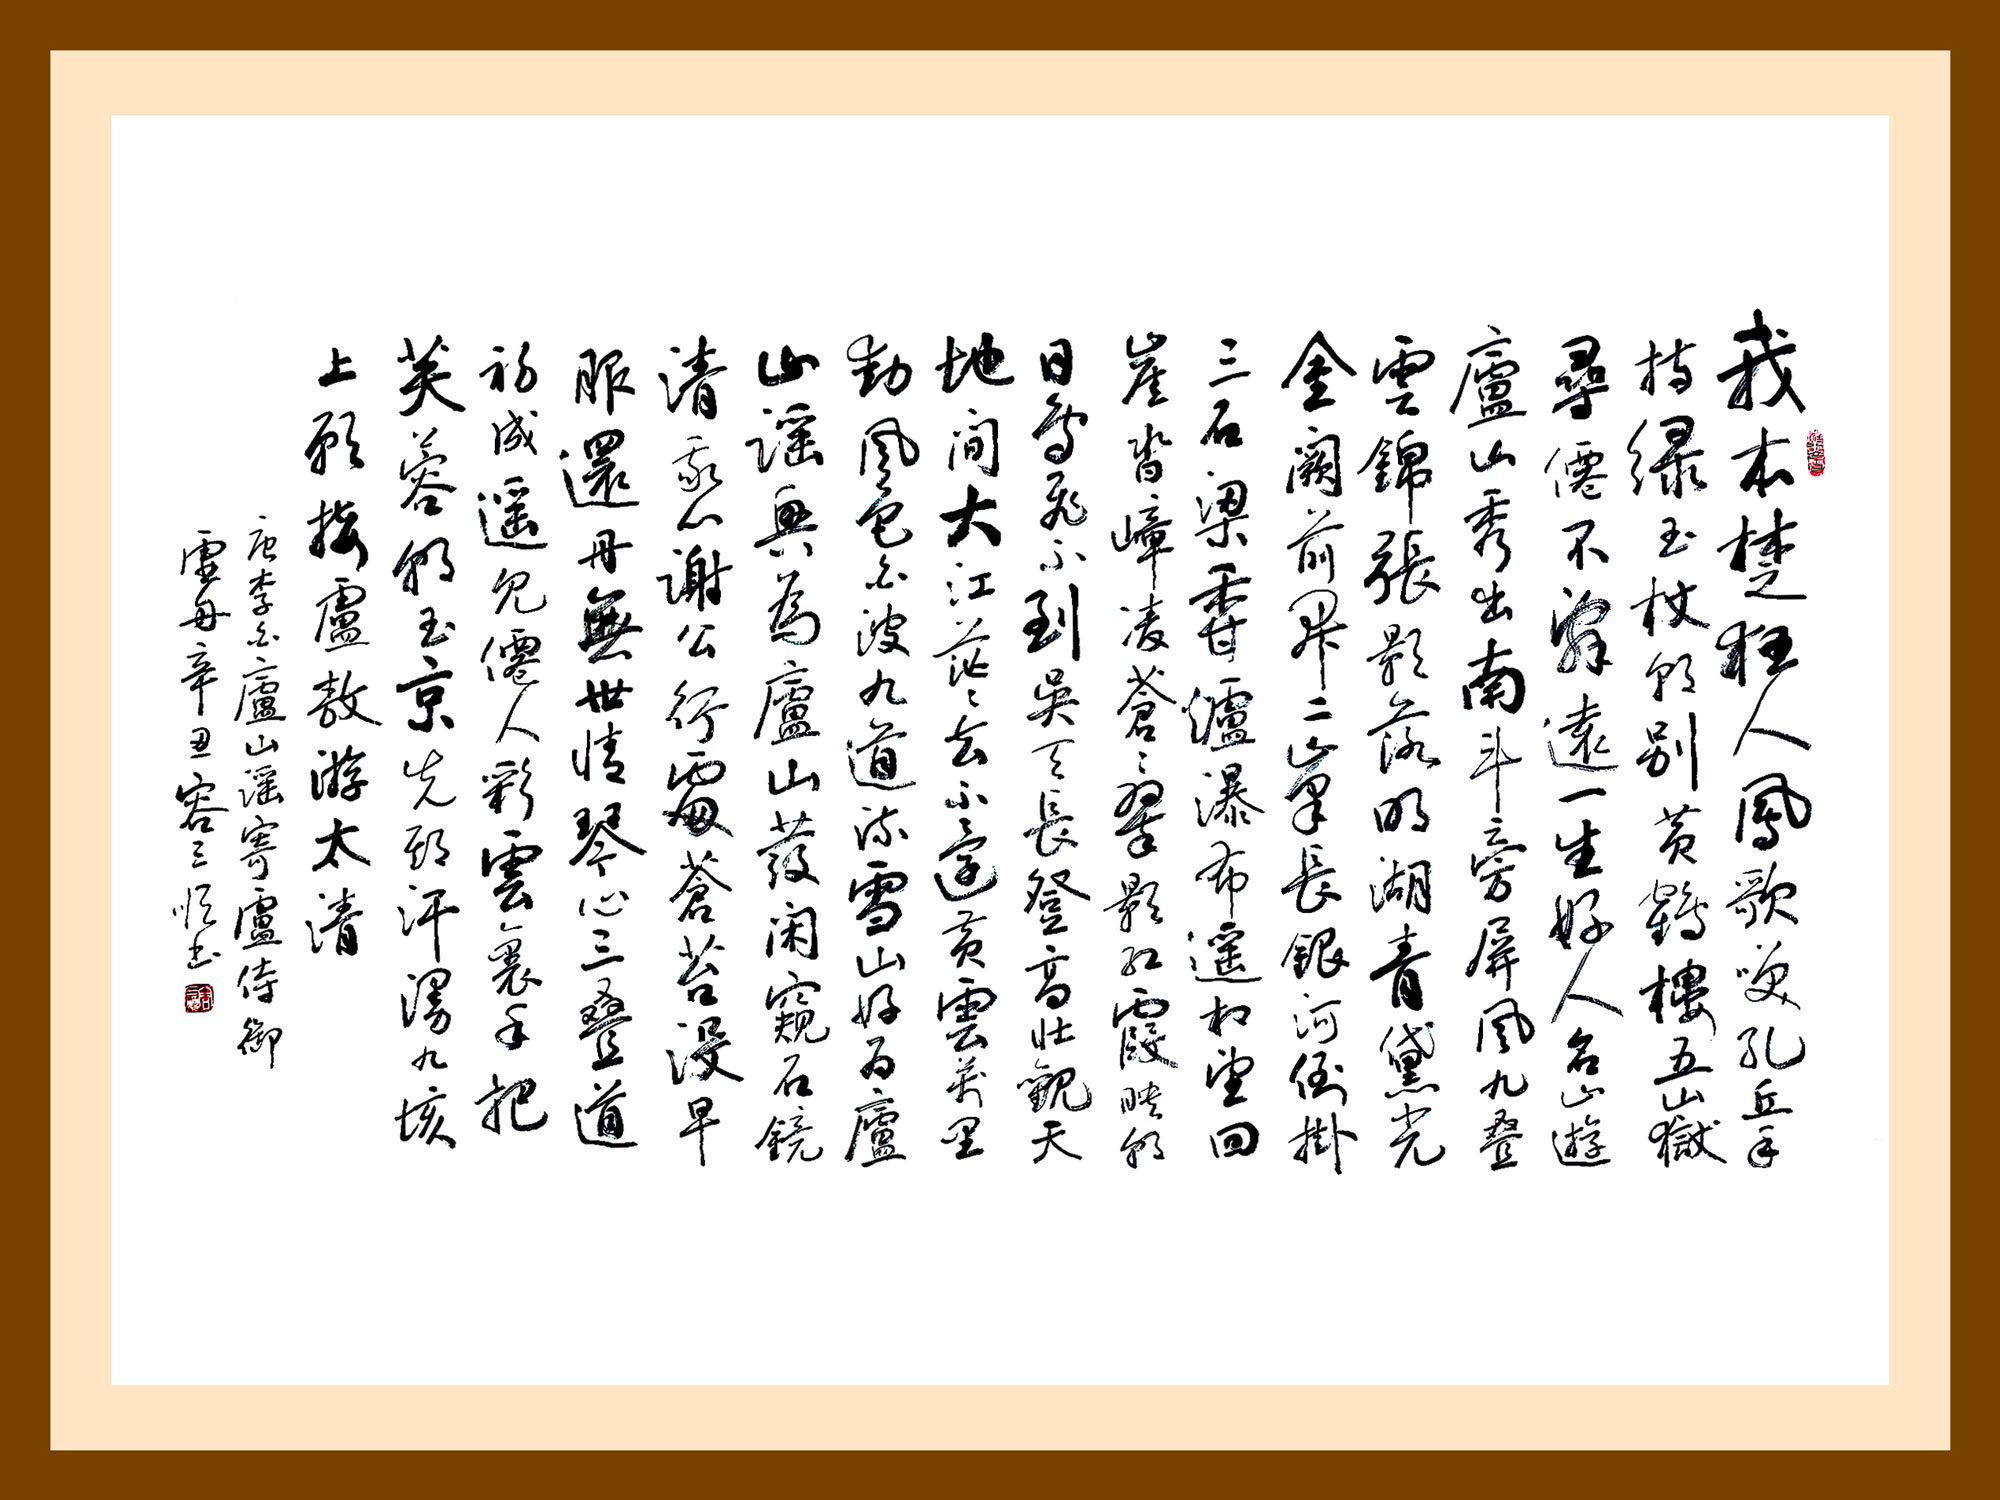 我本楚狂人鳳歌笑孔丘手
持绿玉杖朝别黄鶴樓五嶽
尋僊不辭遠一生好入名山遊
廬山秀出南斗旁屏風九疊
雲錦張影落明湖青黛光
金闕前開二峯長銀河倒掛
三石梁香爐瀑布遥相望回
崖沓嶂凌蒼〻翠影紅霞映朝
日鳥飛不到吳天長登高壯觀天
地间大江茫〻去不還黄雲萬里
動風色白波九道流雪山好为廬
山谣興為廬山發闲窺石鏡
清我心謝公行處蒼苔没早
服還丹無世情琴心三疊道
初成遥見僊人彩雲裏手把
芙蓉朝玉京先期汗漫九垓
上願接盧敖游太清
唐李白廬山谣寄盧侍御
虚舟辛丑容三书